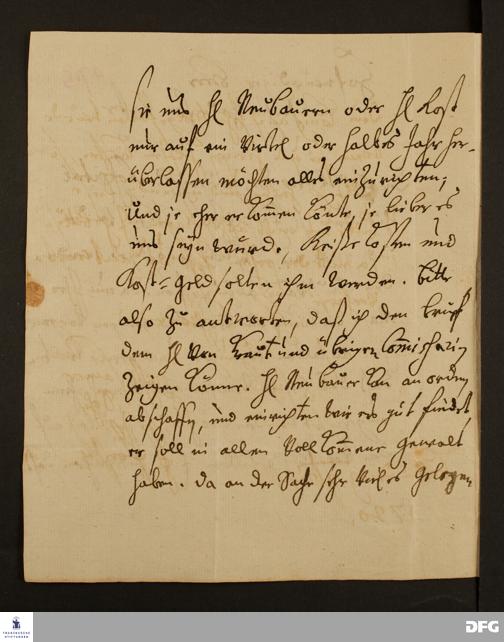 sie uns H. Neubauern oder H. Rost
nur auf ein Virtel oder halbes Jahr her-
überlassen möchten alles einzurichten;
Und je eher er kom̄en könte, je lieber es
uns seyn würde, Reise kosten und
Kost-Geld solten ihm werden. bitte
also zu antworten, daß ich den brief
dem H. Von Kraut und übrigen Com̄issarien
zeigen könne. H. Neubauer kan anordnen
abschaffen, und einrichten wie ers gut findet
er soll in allen Vollkom̄ene gewalt
haben. da an der Sache sehr Viel es gelegen
FRANCKESCHE
STIFTUNGEN
DFG